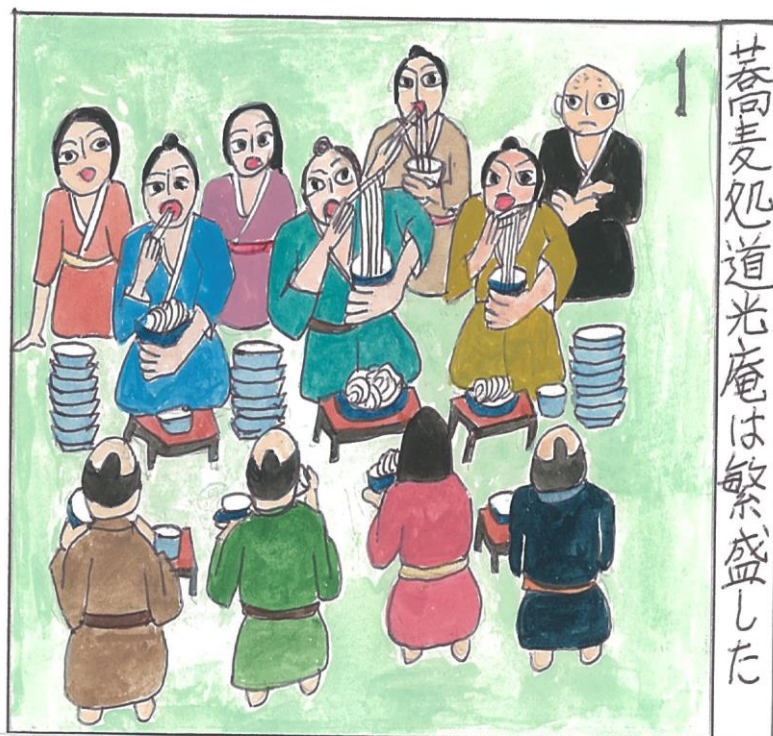 蕎麦処道光庵は繁盛した
1